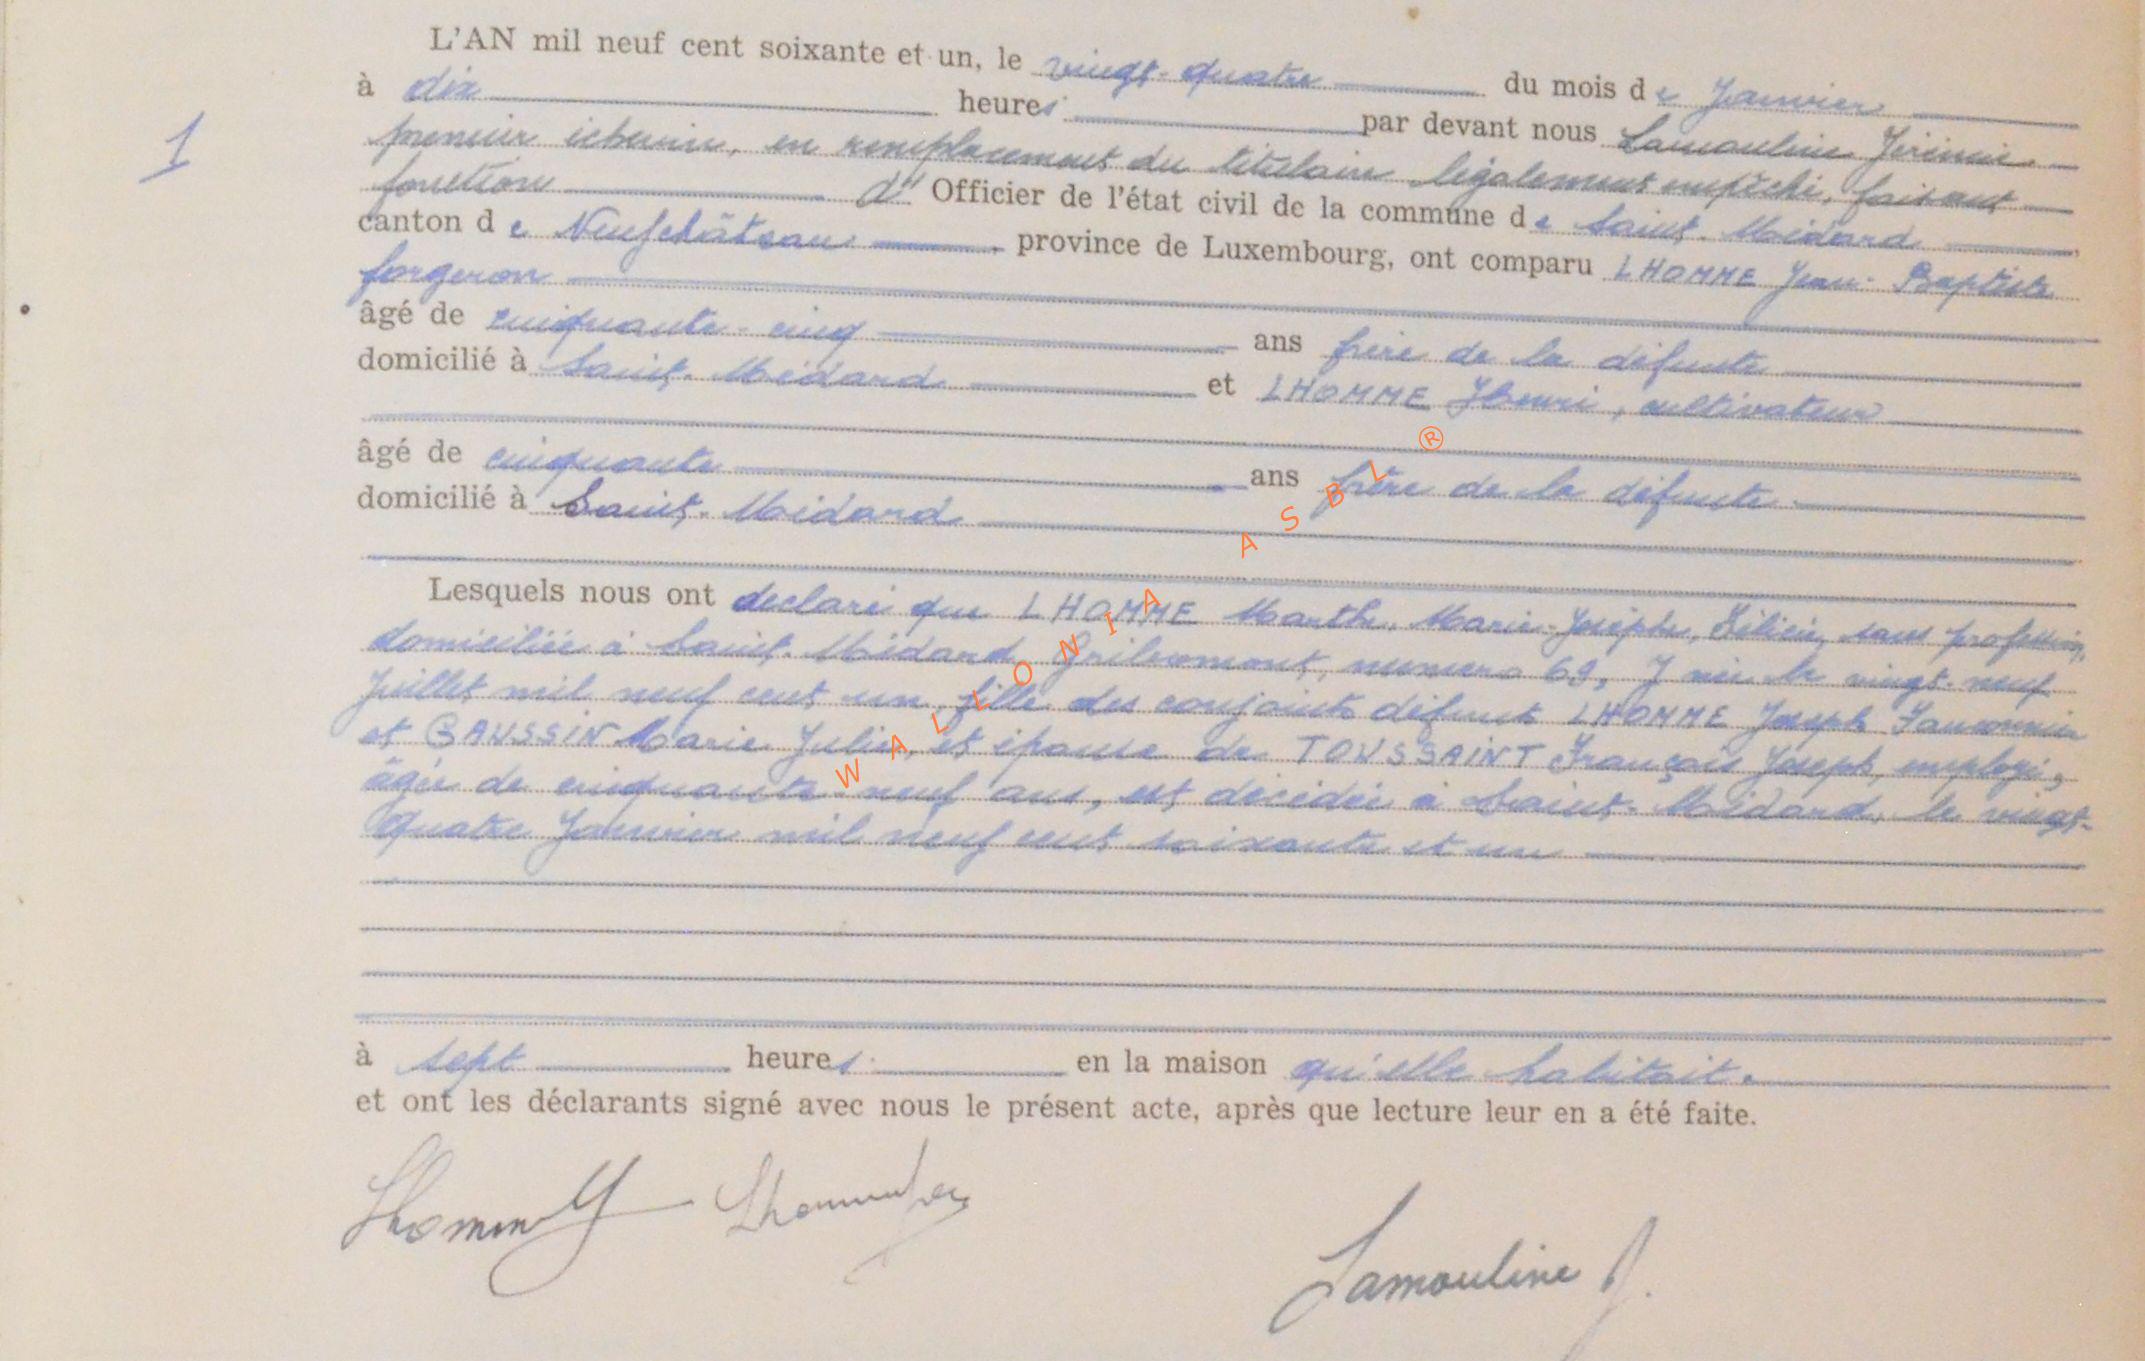 L'AN mil neuf cent soixante et un, le vingt-quatre du mois de Janvier
à dix heures par devant nous Lamouline Jérémie
1
premier échevin, en remplacement du titulaire légalement empêché, faisant
fonction d' Officier de l'état civil de la commune de Saint-Médard
canton de Neufchâteau province de Luxembourg, ont comparu LHOMME Jean-Baptiste
forgeron
âgé de cinquante-cinq ans frère de la défunte
domicilié à Saint-Médard et LHOMME Henri, cultivateur
âgé de cinquante ans frère de la défunte
domicilié à Saint-Médard
Lesquels nous ont declaré que LHOMME Marthe, Marie-Josèphe, Félicie, sans profession,
domiciliée à Saint-Médard, Gribomont, numero 69, y née le vingt-neuf
Juillet mil neuf cent un, fille des conjoints défunts LHOMME Joseph
et GAUSSIN Marie Julie, et épouse de TOUSSAINT François Joseph, employé,
âgée de cinquante-neuf ans, est décédée à Saint-Médard, le vingt-
quatre Janvier mil neuf cent soixante et un
à sept heures en la maison qu'elle habitait.
et ont les déclarants signé avec nous le présent acte, après que lecture leur en a été faite.
Lhomme Lhomme
Lamouline J.
WALLONIA ASBL ®